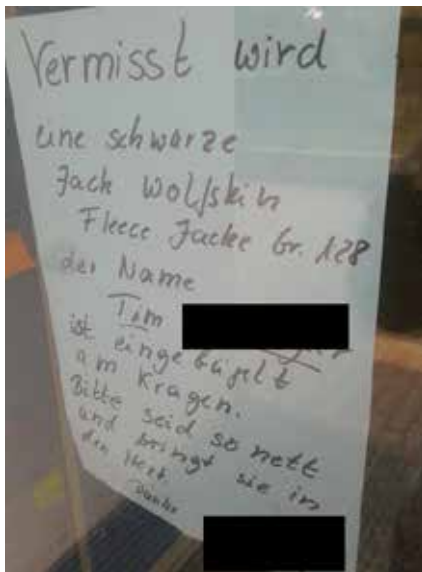 Vermisst wird
eine schwarze
Jack Wolfskin
Fleece Jacke Gr. 128
der Name
Tim
ist eingebügelt
am Kragen.
Bitte seid so nett
und bringt sie in
den Hort
Danke